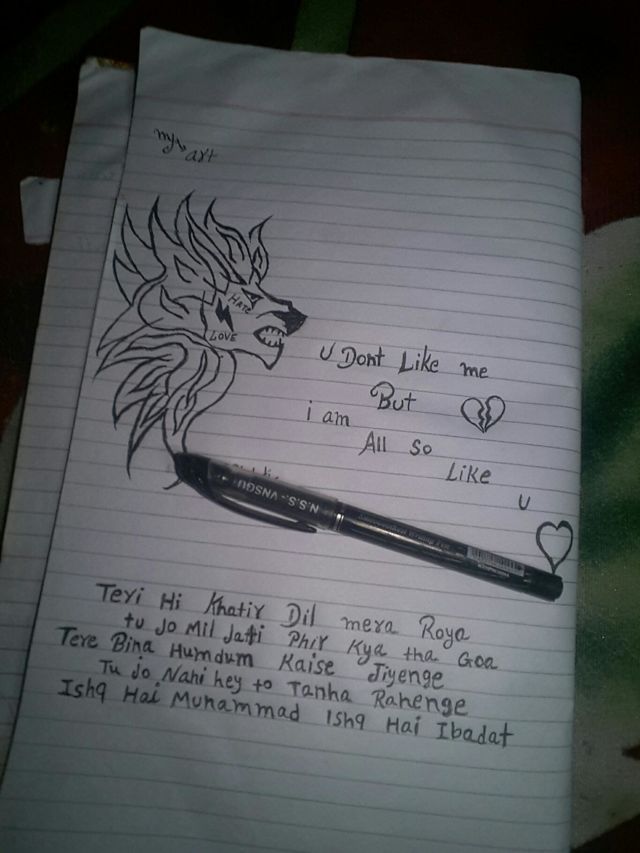 my art
HATE
LOVE
U Dont Like me
But
i am
All so
Like
U
N.S.S.-VNSGU
Teri Hi Khatir Dil mera Roya
tu Jo Mil Jatti Phir Kya tha Goa
Tere Bina Humdum Kaise Jiyenge
Tu jo Nahi hey to Tanha Rahenge
Ishq Hai Muhammad Ishq Hai Ibadat